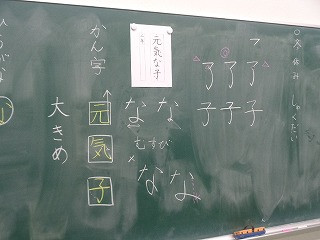 冬休み しゅくだい
フ
了 了 了
子 子 子
元気な子
な な
むすび
な な
かん字
元
気
子
大きめ
ひらがな